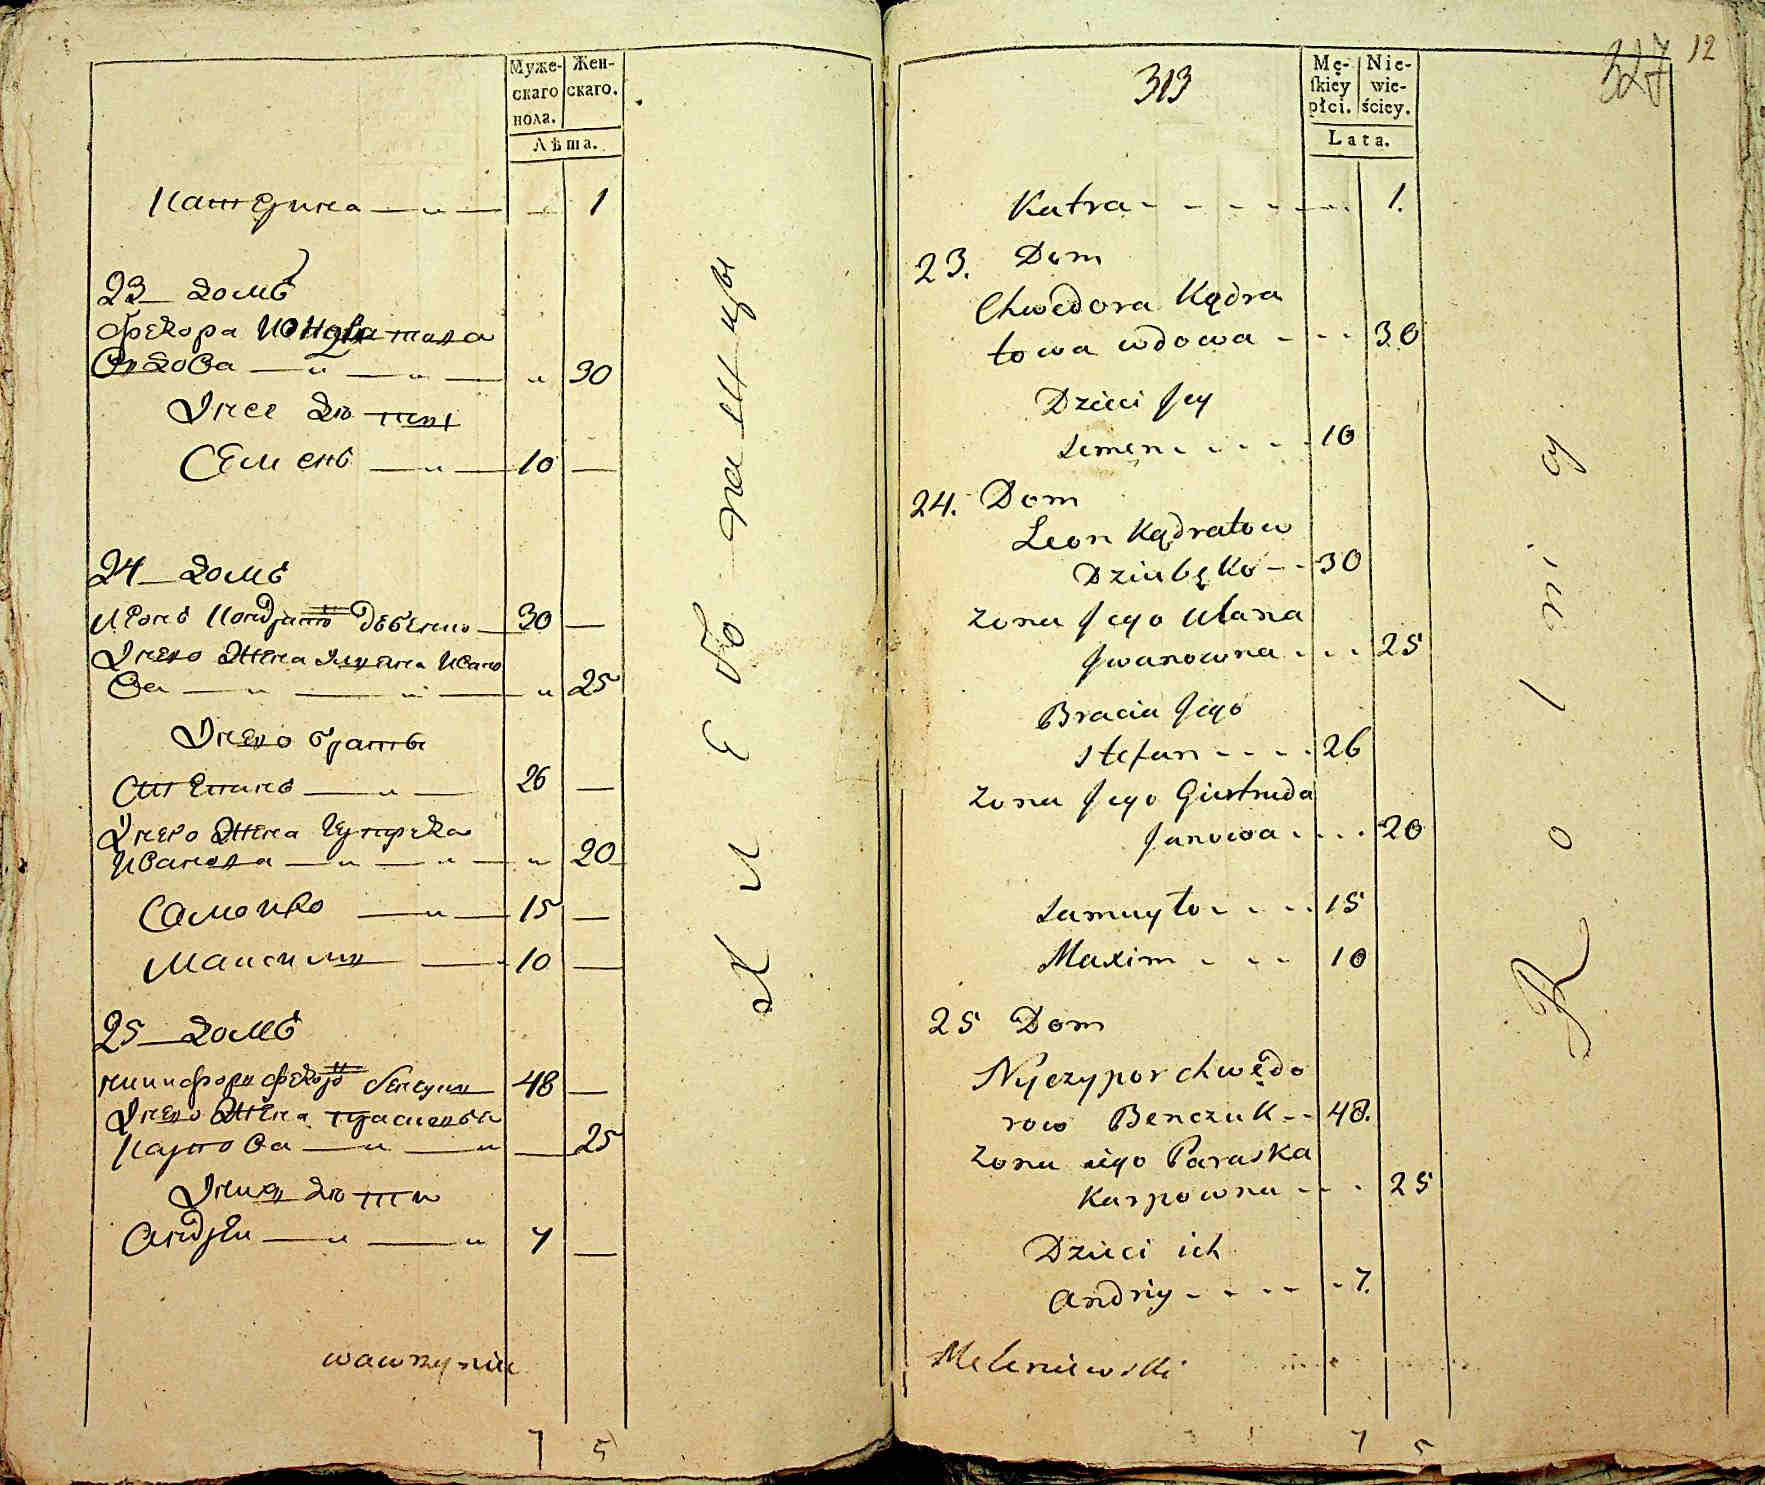 Муже-
скаго
пола.
Жен-
скаго.
Лѣта.
Катерина 1
23 домъ
Федора
вдова 30
Ънее дѣти
Семенъ 10
24 домъ
Леонъ 30
Ънего жена Ивано
ва 25
Ънего братья
Степанъ 26
Ънего жена
Иванова 20
Самойло 15
Максимъ 10
25 домъ
Никифоръ 48
Ънего жена
Карпова 25
Ънихъ дѣти
Андрей 7
wawrzyniec
7 5
Хлебопашцы
327 12
313
Mę-
ſkiey
płci.
Nie-
wie-
ściey.
Lata.
Katra - - - - - 1.
23. Dom
Chwedora Kądra
towa wdowa - - - 30
Dzieci Jey
Semen - - - - 10
24. Dom
Leon Kądratow
Dziubęko - - 30
Zona Jego Ulana
Jwanowna - - - 25
Bracia Jego
Stefan - - - - 26
Zona Jego Giertruda
Janowa - - - - 20
Samuyło - - - - 15
Maxim - - - 10
25 Dom
Nyczypor chwędo
row Benczuk - - 48.
Zona iego Paraska
Karpowna - - - 25
Dzieci ich
Andriy - - - - - 7.
Meleniewski
7 5
Rolnicy